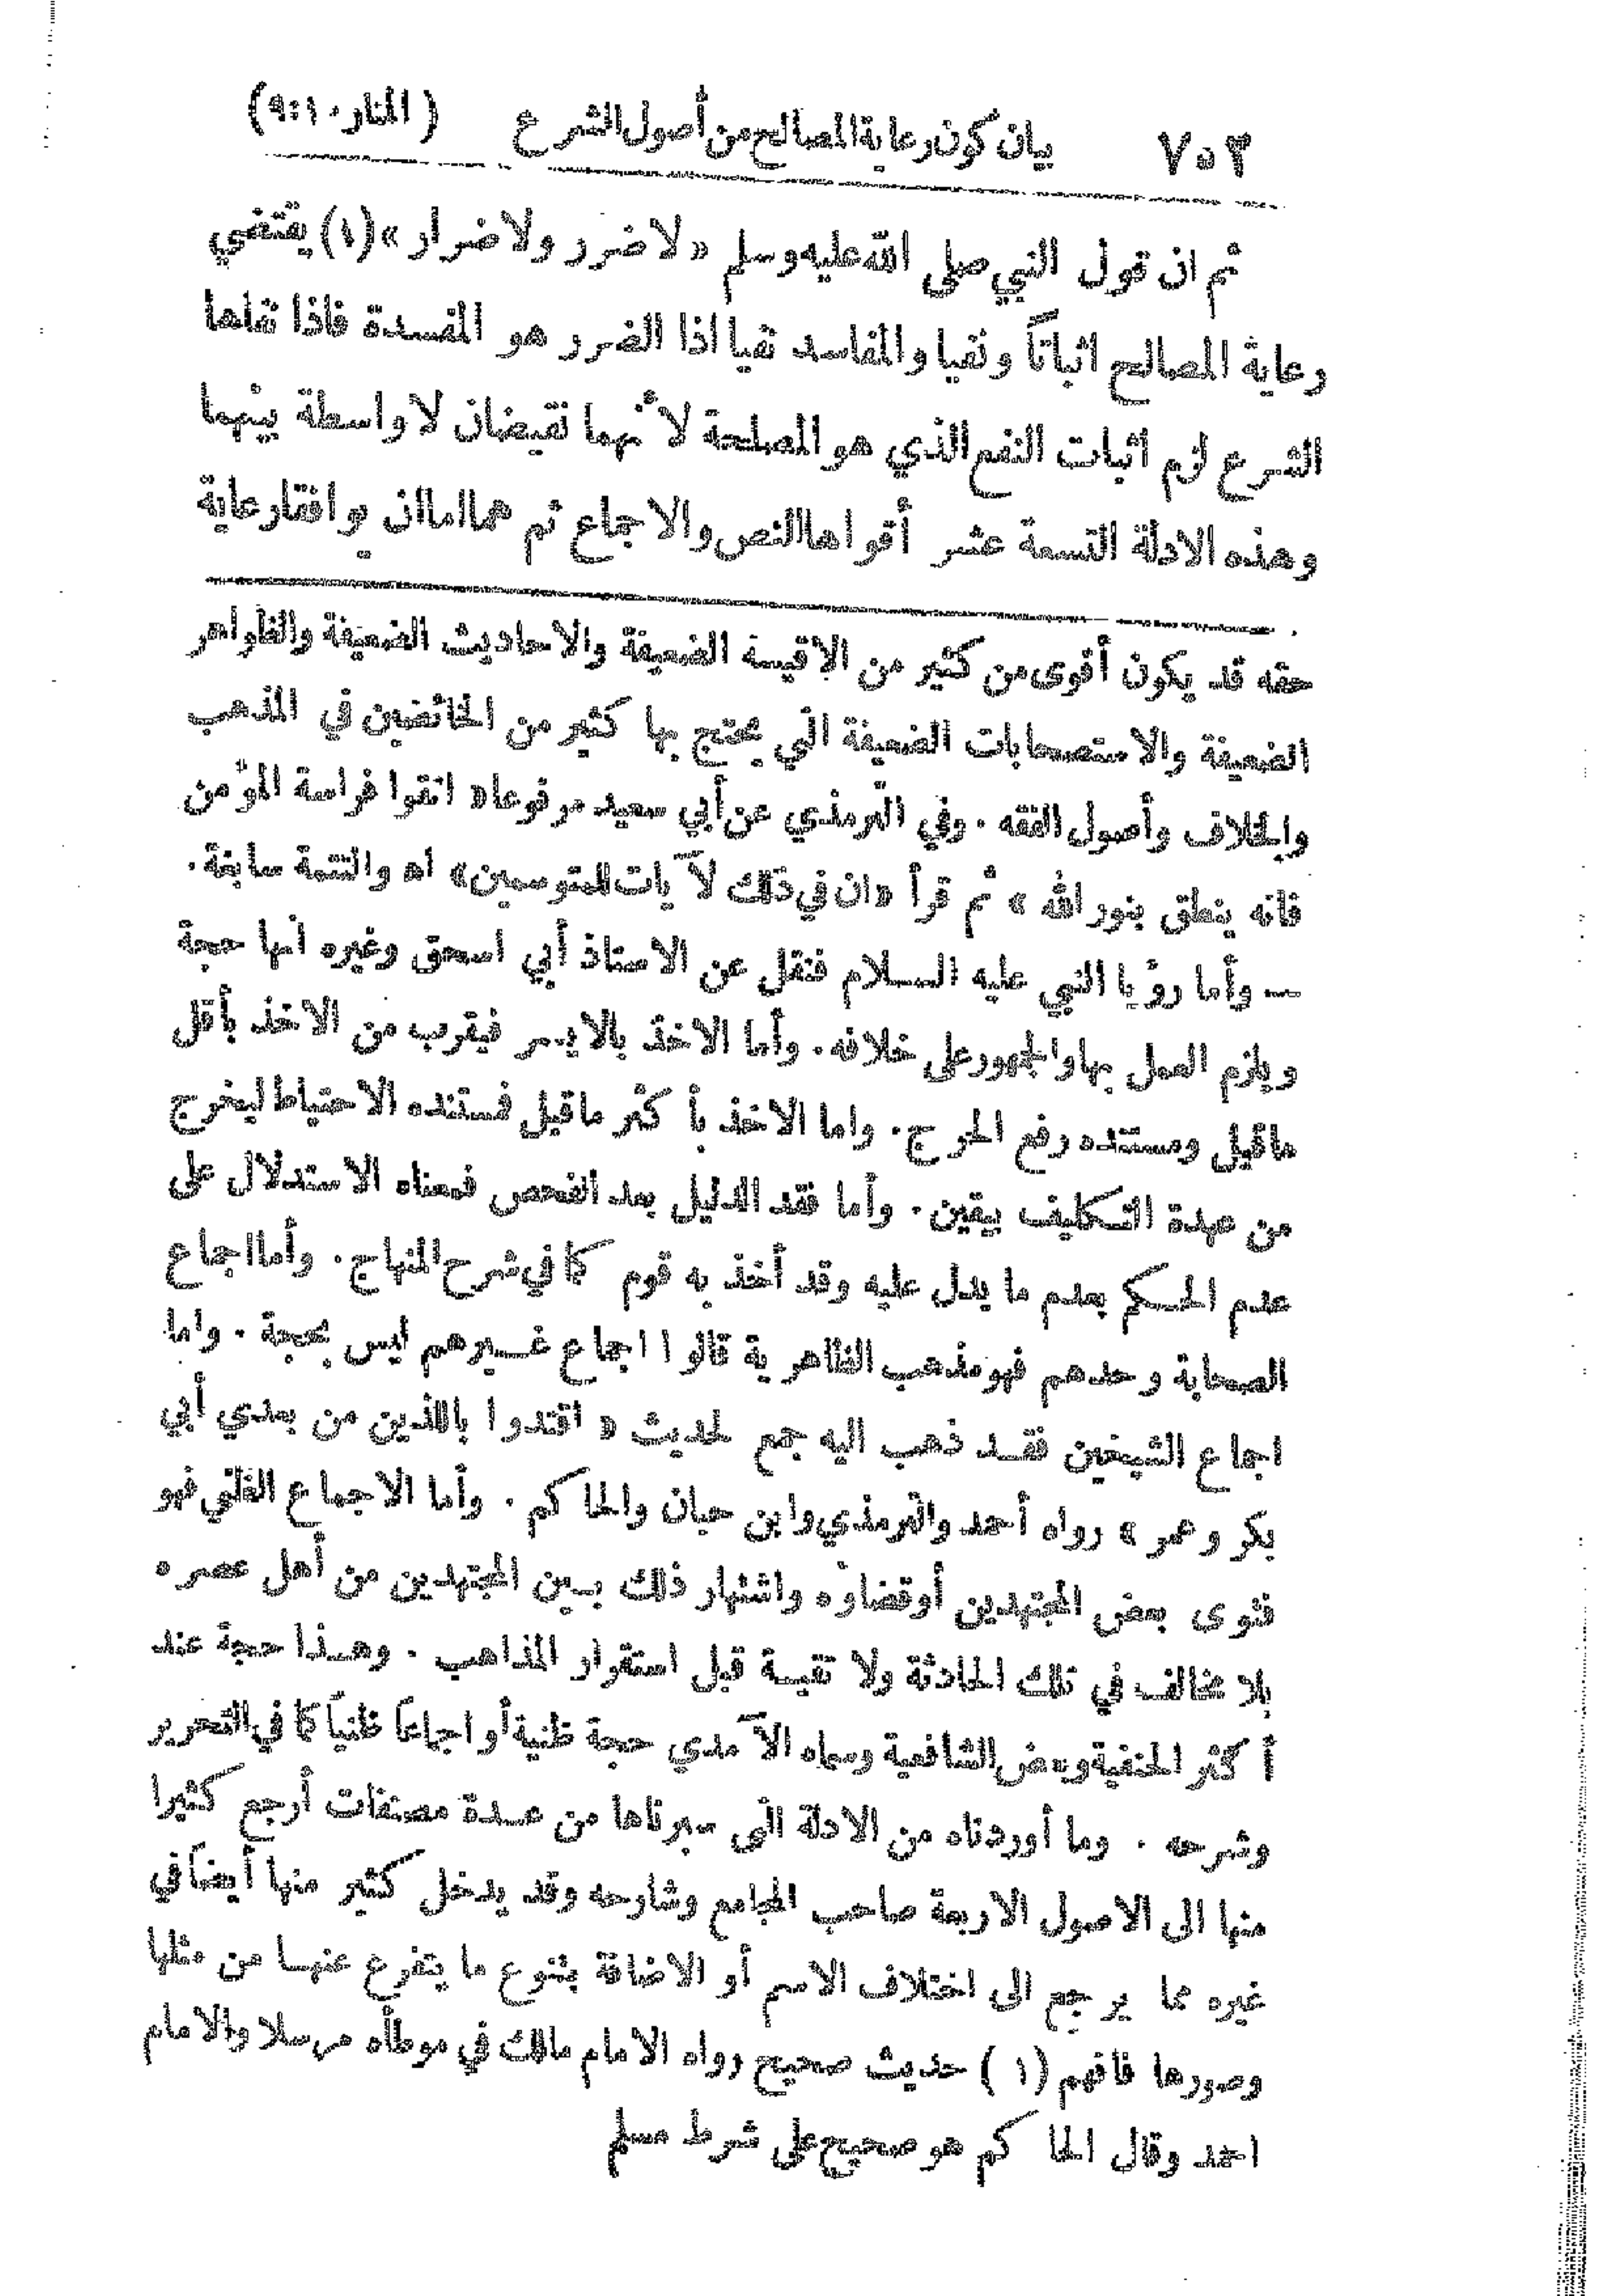 ٧٥٢ بيان كون رعاية المصالح من أصول الشرع (المنار ١٠:٩)
ثم ان قول النبي صلى الله عليه وسلم «لا ضرر ولا ضرار» (١) يقتضي
رعاية المصالح اثباتاً ونفيا والمفاسد نفيا اذا الضرر هو المفسدة فاذا نفاها
الشرع لزم اثبات النفع الذي هو المصلحة لأنهما نقيضان لا واسطة بينهما
وهذه الادلة التسعة عشر أقواها النص والاجماع ثم هما اما ان يوافقا رعاية
حقه قد يكون أقوى من كثير من الاقيسة الضعيفة والاحاديث الضعيفة والظواهر
الضعيفة والاستصحابات الضعيفة التي يحتج بها كثير من الخائضين في المذهب
والخلاف وأصول الفقه . وفي الترمذي عن أبي سعيد مرفوعا « اتقوا فراسة المؤمن
فانه ينطق بنور الله » ثم قرأ «ان في ذلك لآيات للمتوسمين» اه والتتمة سابغة .
— وأما رؤيا النبي عليه السلام فنقل عن الاستاذ أبي اسحق وغيره انها حجة
ويلزم العمل بها والجمهور على خلافه . وأما الاخذ بالايسر فيقرب من الاخذ بأقل
ماقيل ومستنده رفع الحرج . واما الاخذ بأكثر ماقيل فمستنده الاحتياط ليخرج
من عهدة التكليف بيقين . وأما فقد الدليل بعد الفحص فمعناه الاستدلال على
عدم الحكم بعدم ما يدل عليه وقد أخذ به قوم كما في شرح المنهاج . وأما اجماع
الصحابة وحدهم فهو مذهب الظاهرية قالوا اجماع غيرهم ليس بحجة . واما
اجماع الشيخين فقد ذهب اليه جمع لحديث « اقتدوا باللذين من بعدي أبي
بكر وعمر » رواه أحمد والترمذي وابن حبان والحاكم . وأما الاجماع الظني فهو
فتوى بعض المجتهدين أو قضاؤه واشتهار ذلك بين المجتهدين من أهل عصره
بلا مخالف في تلك الحادثة ولا تقية قبل استقرار المذاهب . وهذا حجة عند
أكثر الحنفية وبعض الشافعية وسماه الآمدي حجة ظنية أو اجماعاً ظنياً كما في التحرير
وشرحه . وما أوردناه من الادلة التى سبرناها من عدة مصنفات أرجع كثيرا
منها الى الاصول الاربعة صاحب الجامع وشارحه وقد يدخل كثير منها أيضاً في
غيره مما يرجع الى اختلاف الاسم أو الاضافة بتنوع ما يتفرع عنها من مثلها
وصورها فافهم (١) حديث صحيح رواه الامام مالك في موطأه مرسلا والامام
احمد وقال الحاكم هو صحيح على شرط مسلم